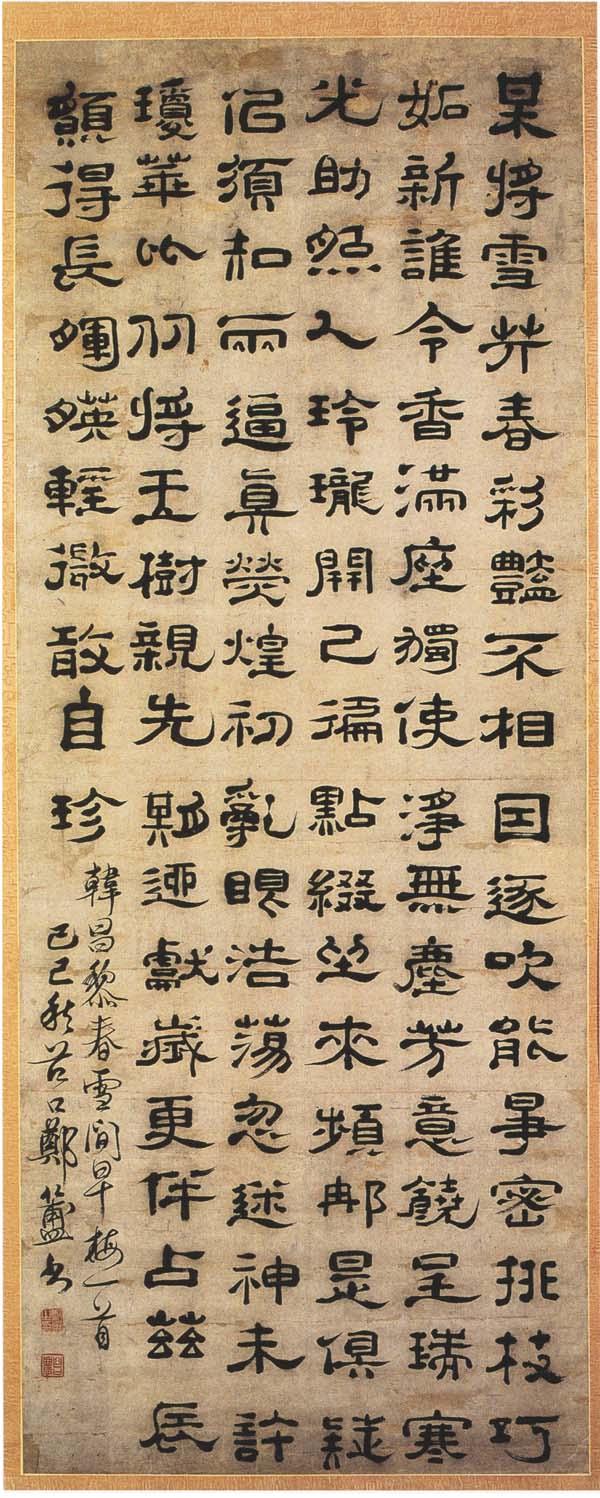 某將雪共春彩豔不相因逐吹能爭密排枝巧
妬新誰令香滿座獨使淨無塵芳意饒呈瑞寒
光助照人玲瓏開已徧點綴坐來頻那是俱疑
佀須知兩逼真熒煌初亂眼浩蕩忽迷神未許
瓊華比從將玉樹親先期迎獻歲更伴占茲辰
願得長暉暎輕微敢自珍
韓昌黎春雪間早梅一首
己巳秋谷口鄭簠書